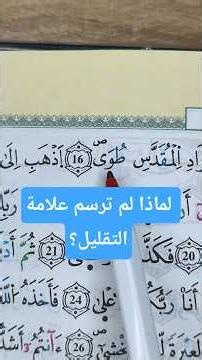 ادِ الْمُقَدَّسِ طُوًى 16 اذْهَبْ إِلَىٰ
لماذا لم ترسم علامة
التقليل؟
20 فَكَذَّ
21 ثُمَّ أَدْ
أَنَا رَبُّكُمُ
عْلَىٰ 24 فَأَخَذَهُ اللَّهُ
26 ءَأَنتُمْ أَشَدُّ